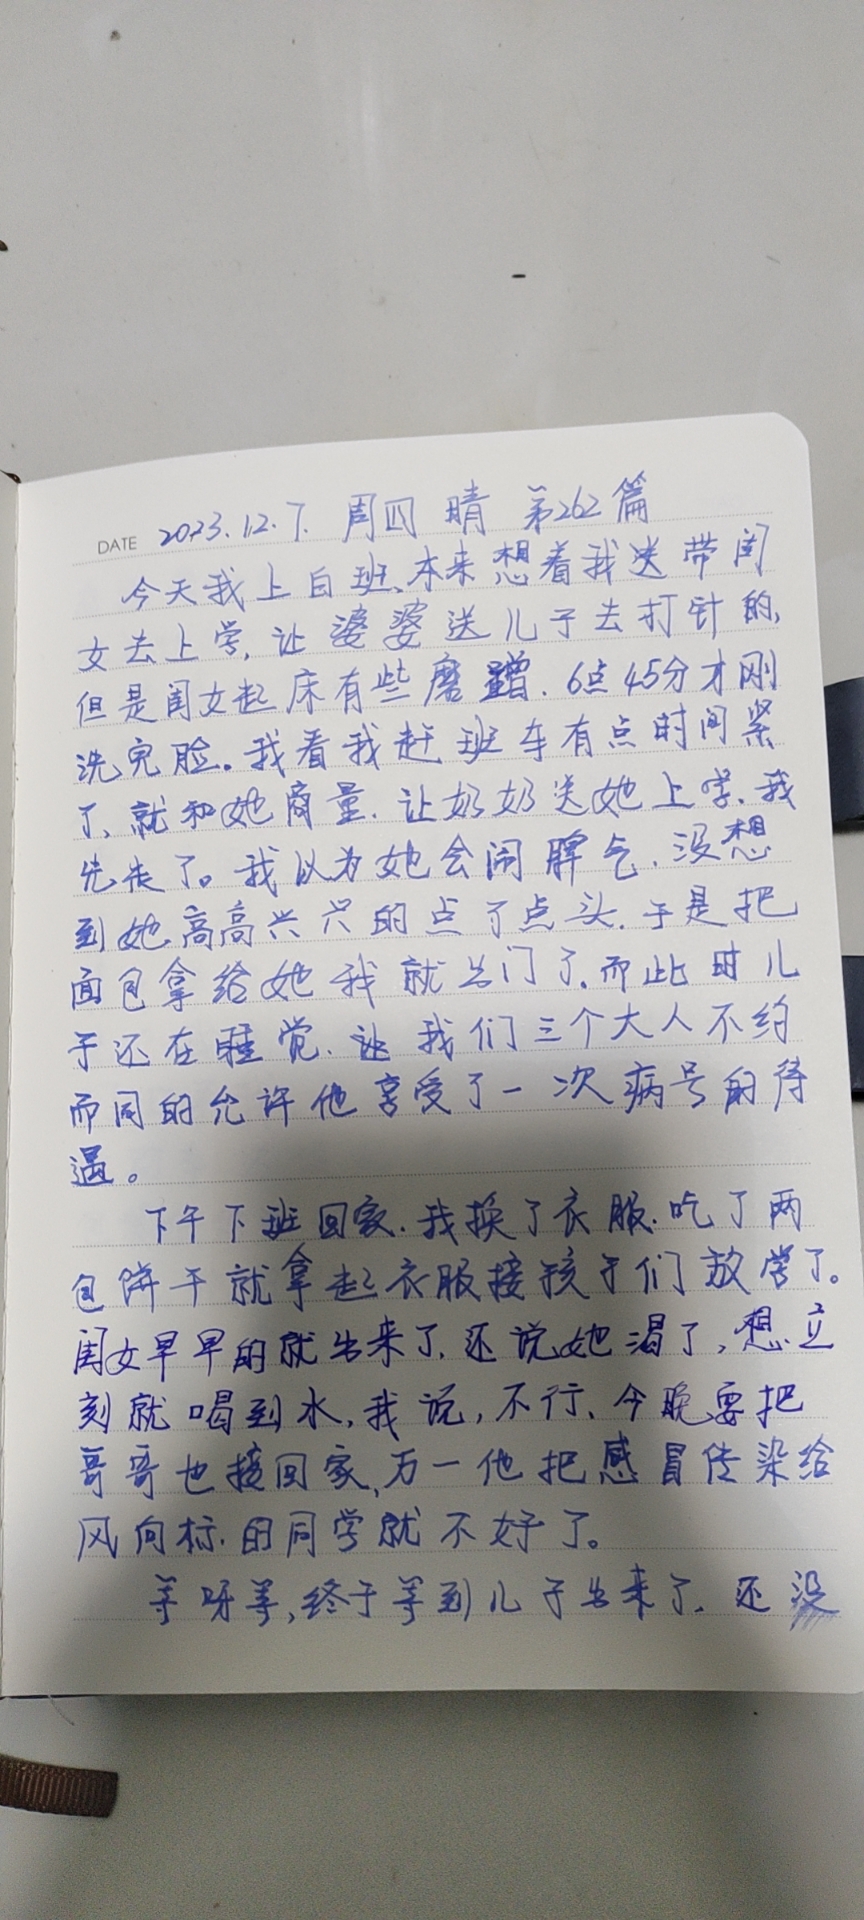 DATE 2023.12.7. 周四 晴 第262篇
今天我上白班、本来想着我送带闺
女去上学,让婆婆送儿子去打针的,
但是闺女起床有些磨蹭.6点45分才刚
洗完脸。我看我赶班车有点时间紧
了、就和她商量.让奶奶送她上学.我
先走了。我以为她会闹脾气.没想
到她高高兴兴的点了点头.于是把
面包拿给她我就出门了.而此时儿
子还在睡觉.让我们三个大人不约
而同的允许他享受了一次病号的待
遇。
下午下班回家.我换了衣服.吃了两
包饼干就拿起衣服接孩子们放学了。
闺女早早的就出来了.还说她渴了,想立
刻就喝到水,我说,不行、今晚要把
哥哥也接回家,万一他把感冒传染给
风向标.的同学就不好了。
等呀等,终于等到儿子出来了.还没